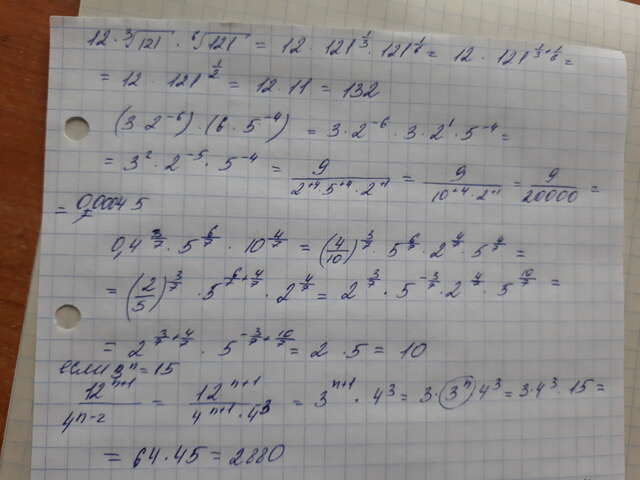 12·∛121 · ⁶√121 = 12 · 121^(1/3) · 121^(1/6) = 12 · 121^(1/3+1/6) =
= 12 · 121^(1/2) = 12·11 = 132
(3·2⁻⁶)·(6·5⁻⁴) = 3·2⁻⁶·3·2¹·5⁻⁴ =
= 3²·2⁻⁵·5⁻⁴ = 9/(2⁺⁴5⁺⁴·2⁺¹) = 9/(10⁺⁴·2⁺¹) = 9/20000 =
= 0,00045
0,4^(3/7)·5^(6/7)·10^(4/7) = (4/10)^(3/7)·5^(6/7)·2^(4/7)·5^(4/7) =
= (2/5)^(3/7)·5^(6/7+4/7)·2^(4/7) = 2^(3/7)·5^(-3/7)·2^(4/7)·5^(10/7) =
= 2^(3/7+4/7)·5^(-3/7+10/7) = 2·5 = 10
если 3ⁿ = 15
12ⁿ⁺¹/4ⁿ⁻² = 12ⁿ⁺¹/(4ⁿ⁺¹·4⁻³) = 3ⁿ⁺¹·4³ = 3·3ⁿ·4³ = 3·4³·15 =
= 64·45 = 2880